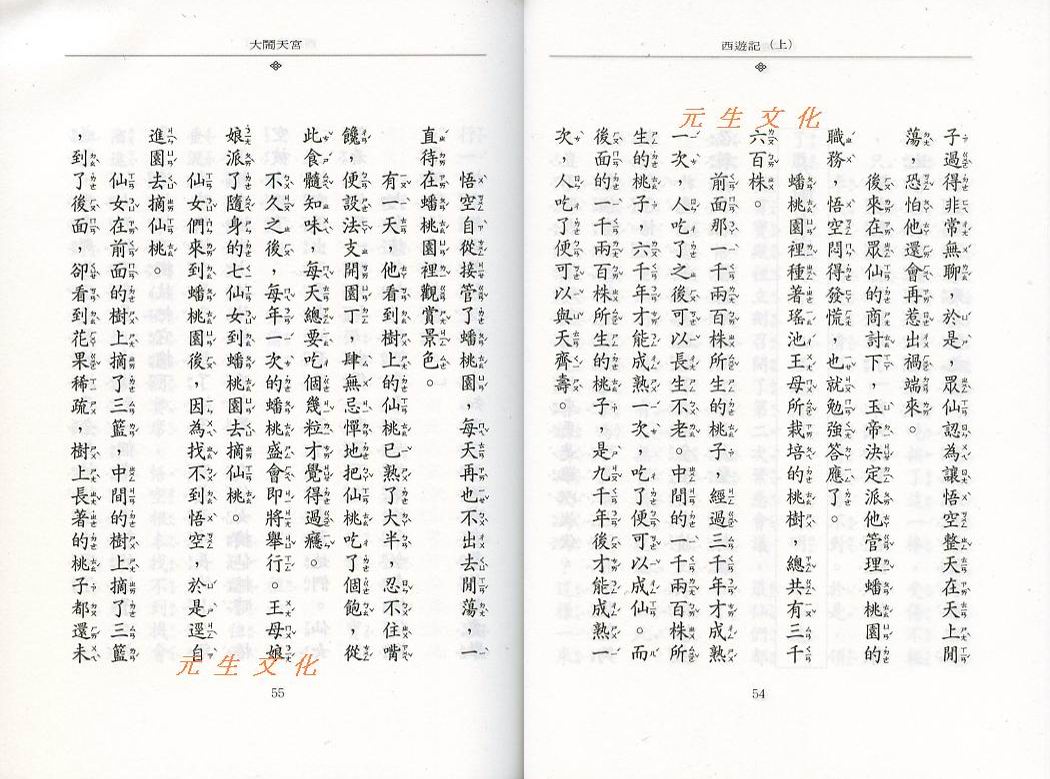 西遊記（上）
元生文化
子過得非常無聊，於是，眾仙認為讓悟空整天在天上閒
蕩，恐怕他還會再惹出禍端來。
後來在眾仙的商討下，玉帝決定派他管理蟠桃園的
職務，悟空悶得發慌，也就勉強答應了。
蟠桃園裡種著瑤池王母所栽培的桃樹，總共有三千
六百株。
前面那一千兩百株所生的桃子，經過三千年才成熟
一次，人吃了之後可以長生不老。中間的一千兩百株所
生的桃子，六千年才能成熟一次，吃了便可以成仙。而
後面的一千兩百株所生的桃子，是九千年後才能成熟一
次，人吃了便可以與天齊壽。
54
大鬧天宮
悟空自從接管了蟠桃園，每天再也不出去閒蕩，一
直待在蟠桃園裡觀賞景色。
有一天，他看到樹上的仙桃已熟了大半，忍不住嘴
饞，便設法支開園丁，肆無忌憚地把仙桃吃了個飽，從
此食髓知味，每天總要吃個幾粒才覺得過癮。
不久之後，每年一次的蟠桃盛會即將舉行。王母娘
娘派了隨身的七仙女到蟠桃園去摘仙桃。
仙女們來到蟠桃園後，因為找不到悟空，於是逕自
進園去摘仙桃。
仙女在前面的樹上摘了三籃，中間的樹上摘了三籃
，到了後面，卻看到花果稀疏，樹上長著的桃子都還未
元生文化
55